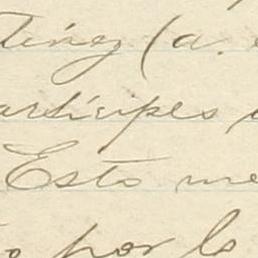 tínez (a.
artícipes
Esto me
por lo